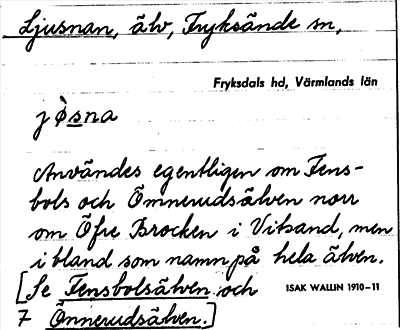 Ljusnan, älv, Fryksände sn,
Fryksdals hd, Värmlands län
jòsna
Användes egentligen om Fens-
bols och Ömnerudsälven norr
om Öfre Brocken i Vitsand, men
i bland som namn på hela älven.
[Se Fensbolsälven och
ISAK WALLIN 1910-11
7 Önnerudsälven.]